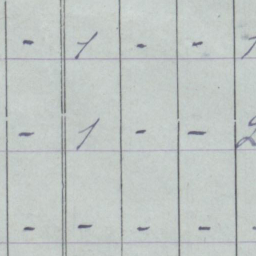 - 1 - - 1
- 1 - - 2
- - - - -